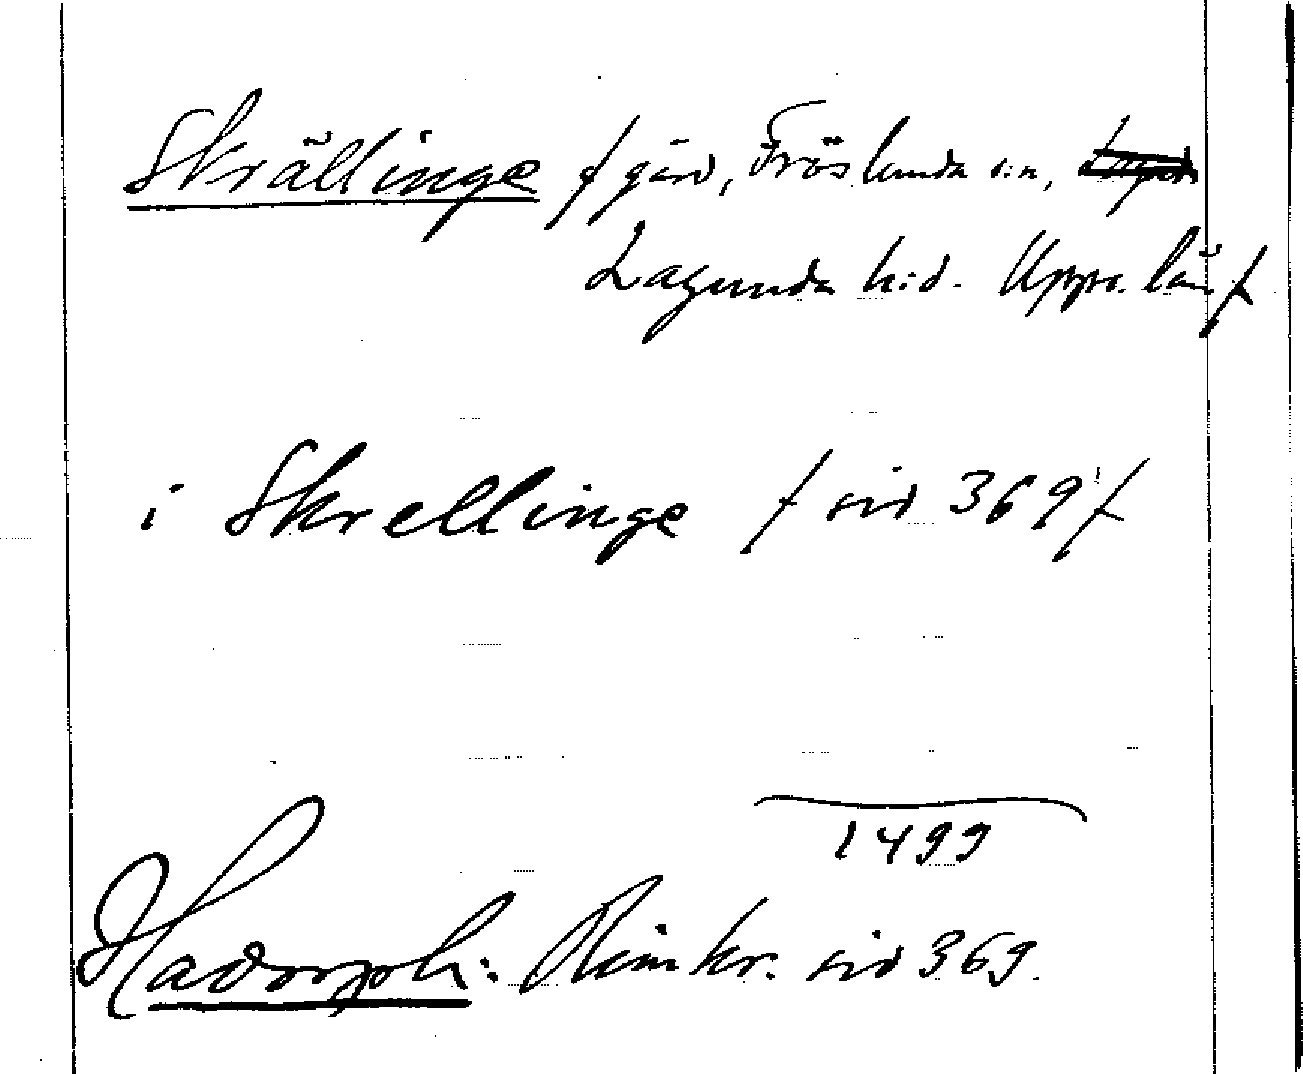 Skrällinge /gård, Fröslunda s:n,
Lagunda h:d. Upps. län/
i Skrellinge / sid 369/
1499
Hadorph: Rimkr. sid 369.